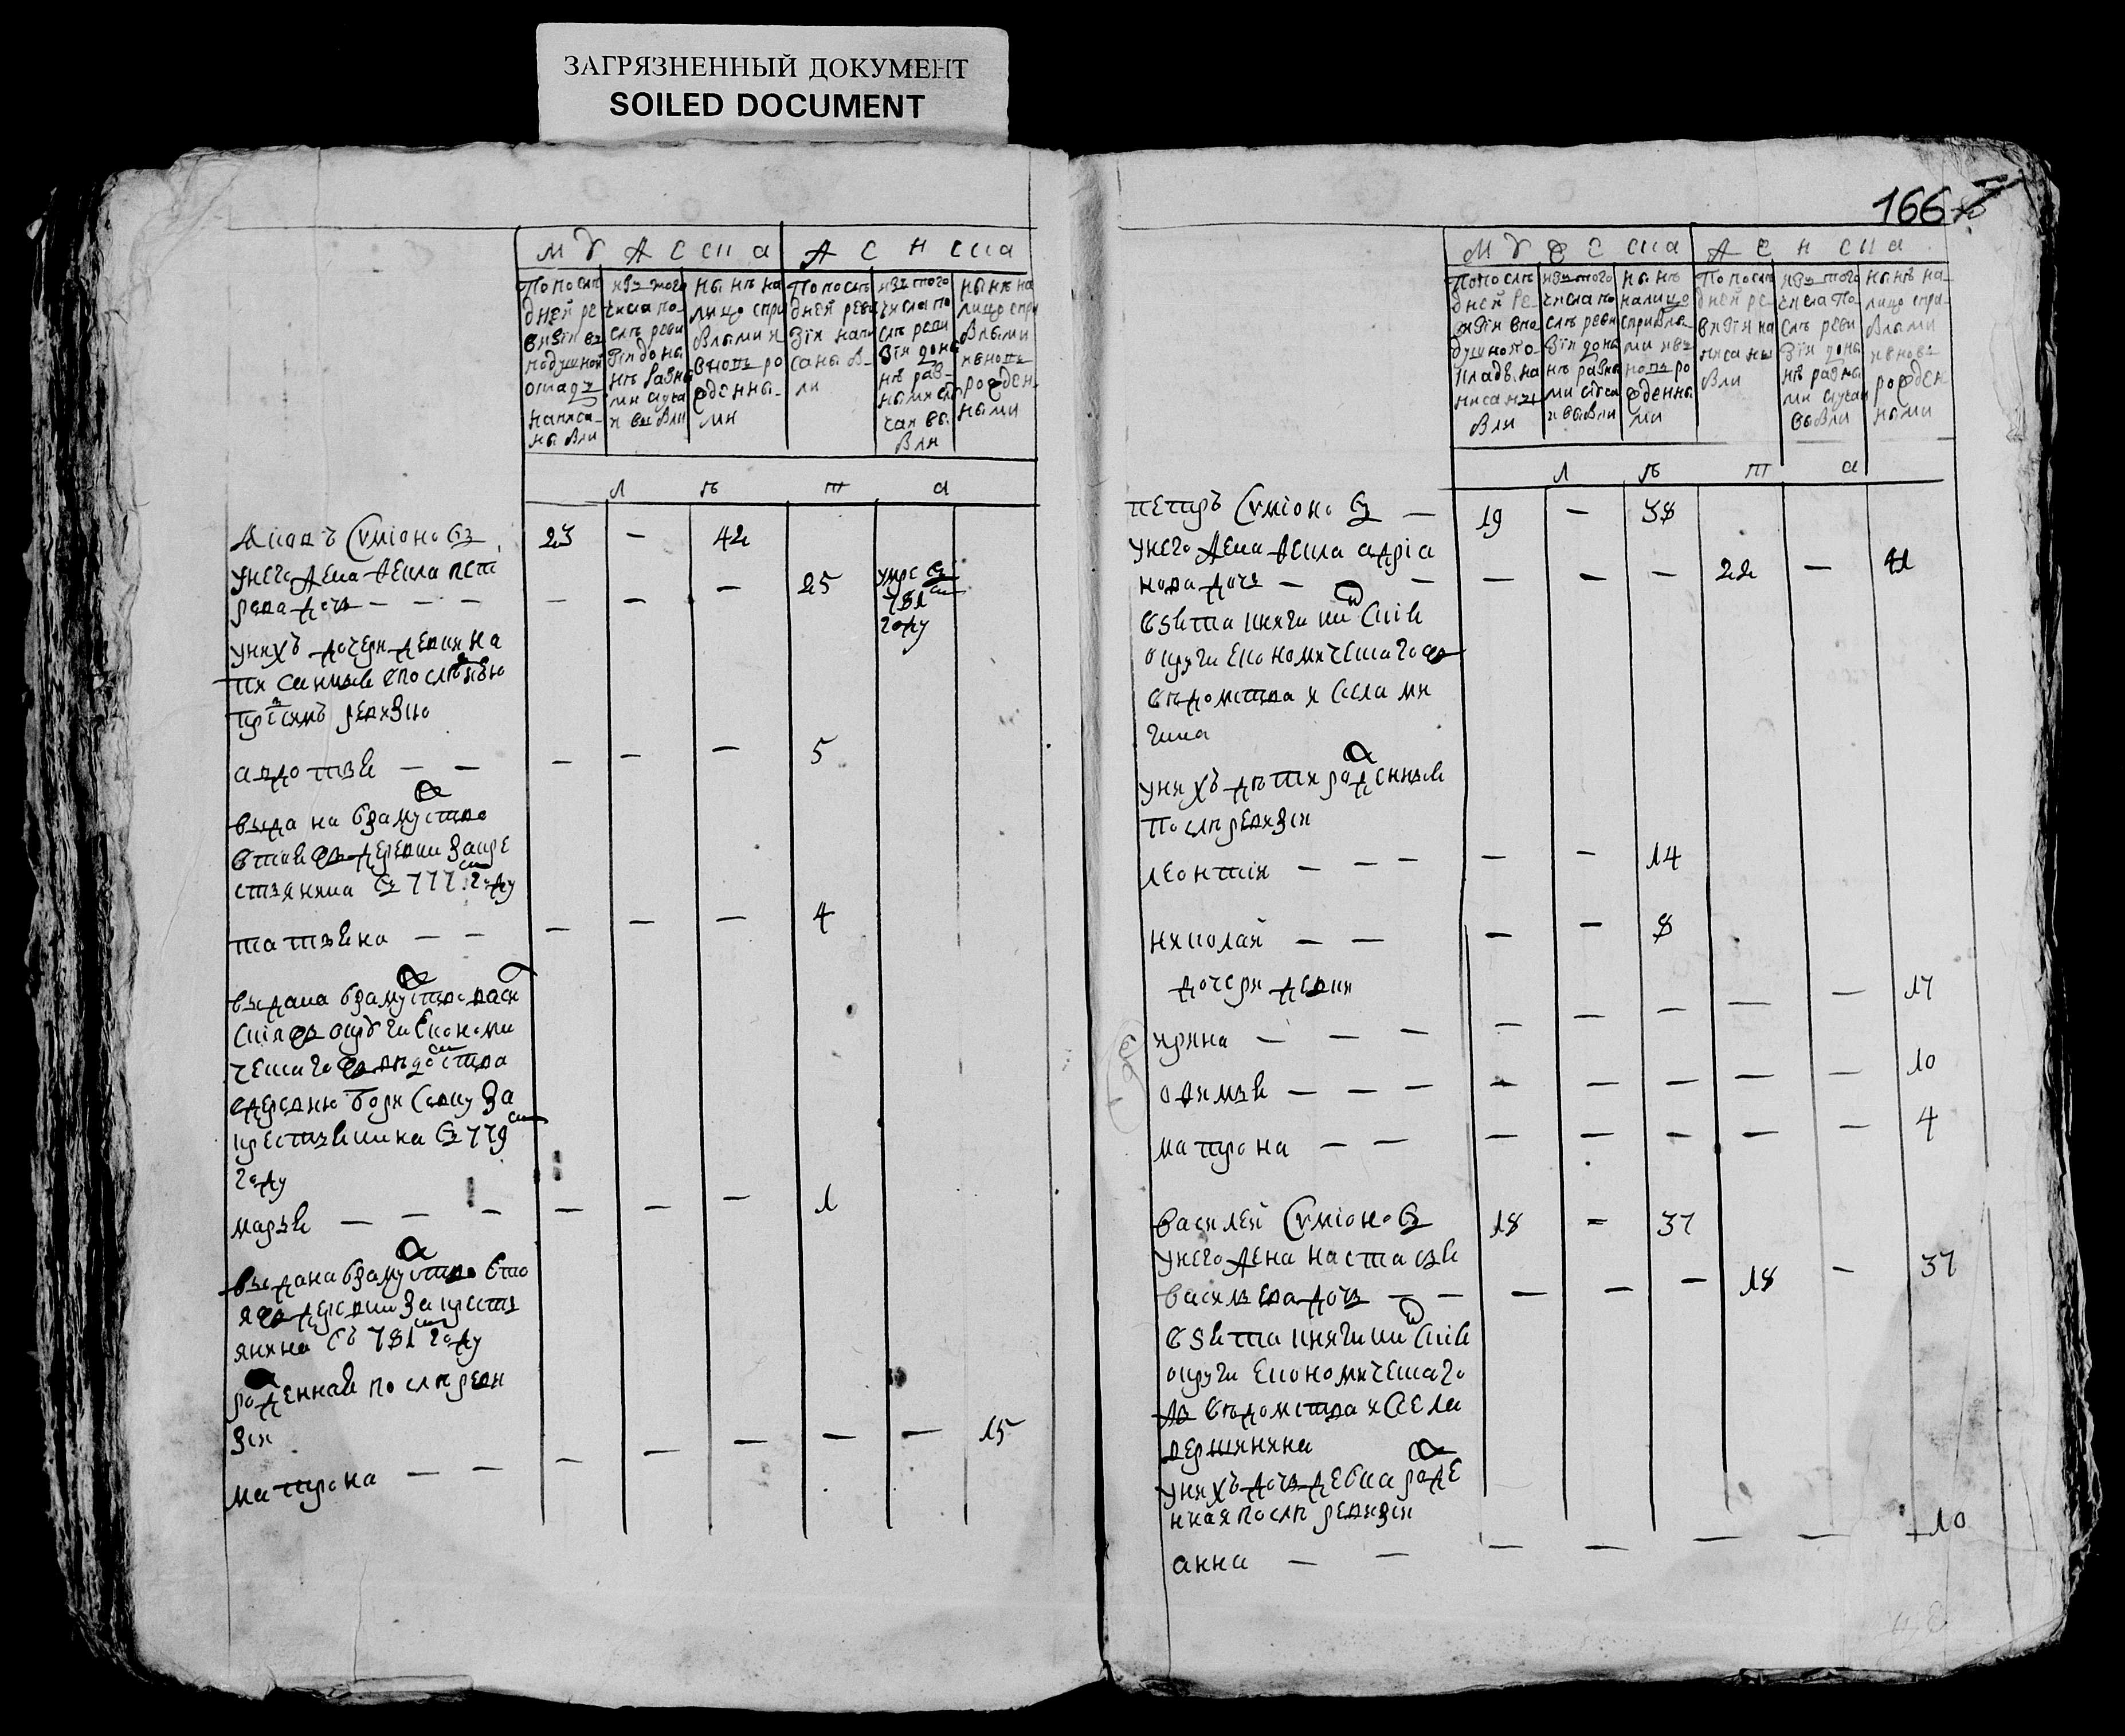 ЗАГРЯЗНЕННЫЙ ДОКУМЕНТ
SOILED DOCUMENT
166
мужеска женска
По после
дней ре
визіи въ
подушной
окладъ
написа-
ны были
изъ того
числа по-
слѣ реви
зіи до ны
нѣ разны
ми случа
и выбыли
ны нѣ на
лицо спри
былыми и
вновь ро
жденны-
ми
По послѣ
дней реви
зіи напи
саны бы-
ли
изъ того
числа по
слѣ реви
зіи доны
нѣ раз-
ными слу
чаи вы
были
ны нѣ на
лицо спри
былыми
и вновь
рожден
ными
л ѣ т а
Яковъ Сѵміоновъ 23 — 42
унего жена Акила пет
рова дочь — — — — — — 25 умре въ
781м
году
унихъ дочери девки на
пи санные впослѣднюю
пред симъ ревизию
авдотья — — — — — 5
выдана взамуство
втой же деревни закре
стьянина въ 777м году
татьяна — — — — — 4
выдана взамуство
округи економи
ческаго ведомства
вдеревню За
крестьянина въ 779м
году
марья — — — — — — 1
выдана взамуство вто
й же деревни за кресть
янина въ 781м году
рожденная после реви
зіи
матрона — — — — — — — 15
мужеска женска
По послѣ
дней ре-
визіи впо
душномо-
кладѣ на
писаны
были
изъ того
числа по
слѣ реви
зіи доны
нѣ разны
ми случа
и выбыли
ны нѣ
налицо
сприбылы
ми ивъ
новь ро
жденны
ми
По послѣ
дней ре-
визіи на
писаны
были
изъ того
числа по-
слѣ реви
зіи доны
нѣ разны
ми случаи
выбыли
ны нѣ на-
лицо спри-
былыми
ивновь
рожден
ными
л ѣ т а
петръ Сѵміоновъ — 19 — 38
унего жена Акила адріа
нова дочь — — — — — 22 — 41
взята княгинской
округи економическагожъ
ведомства исела
унихъ дѣти рожденные
после ревизіи
леонтіи — — — — — 14
николай — — — — 8
дочери девки
ирина — — — — — — — — 17
офимья — — — — — — — — 10
матрона — — — — — — — 4
василей Сѵміоновъ 18 — 37
унего жена настасья
васильева дочь — — — — — 18 — 37
взята княгинской
округи економическаго
жъ ведомства исела
унихъ дочь девка рожде
нная после ревизіи
анна — — — — — — 10